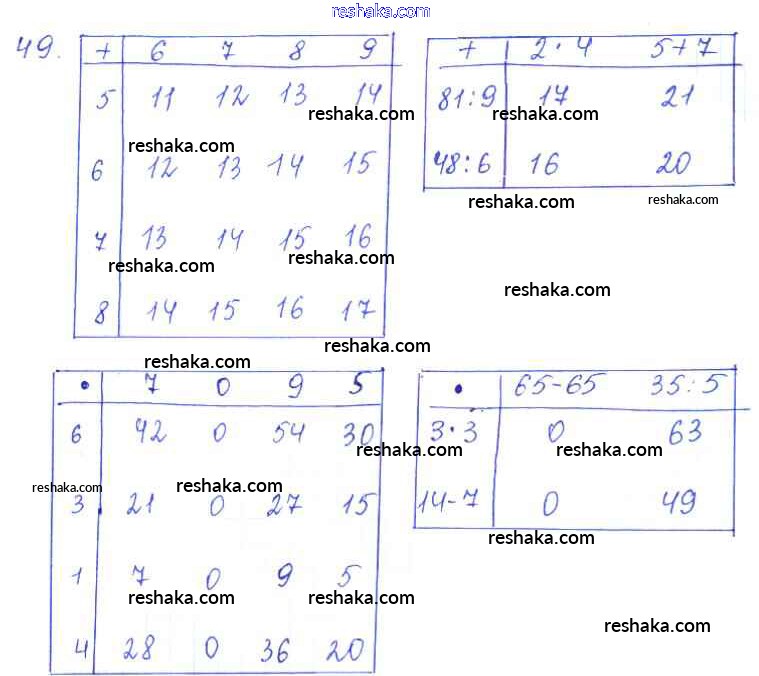 reshaka.com
49.
+ 6 7 8 9
5 11 12 13 14
reshaka.com
reshaka.com
6 12 13 14 15
7 13 14 15 16
reshaka.com
reshaka.com
8 14 15 16 17
+ 2·4 5+7
81:9 17 21
reshaka.com
48:6 16 20
reshaka.com
reshaka.com
reshaka.com
reshaka.com
reshaka.com
• 7 0 9 5
6 42 0 54 30
reshaka.com
reshaka.com
reshaka.com
3 21 0 27 15
1 7 0 9 5
reshaka.com
reshaka.com
4 28 0 36 20
• 65-65 35:5
3·3 0 63
reshaka.com
14-7 0 49
reshaka.com
reshaka.com